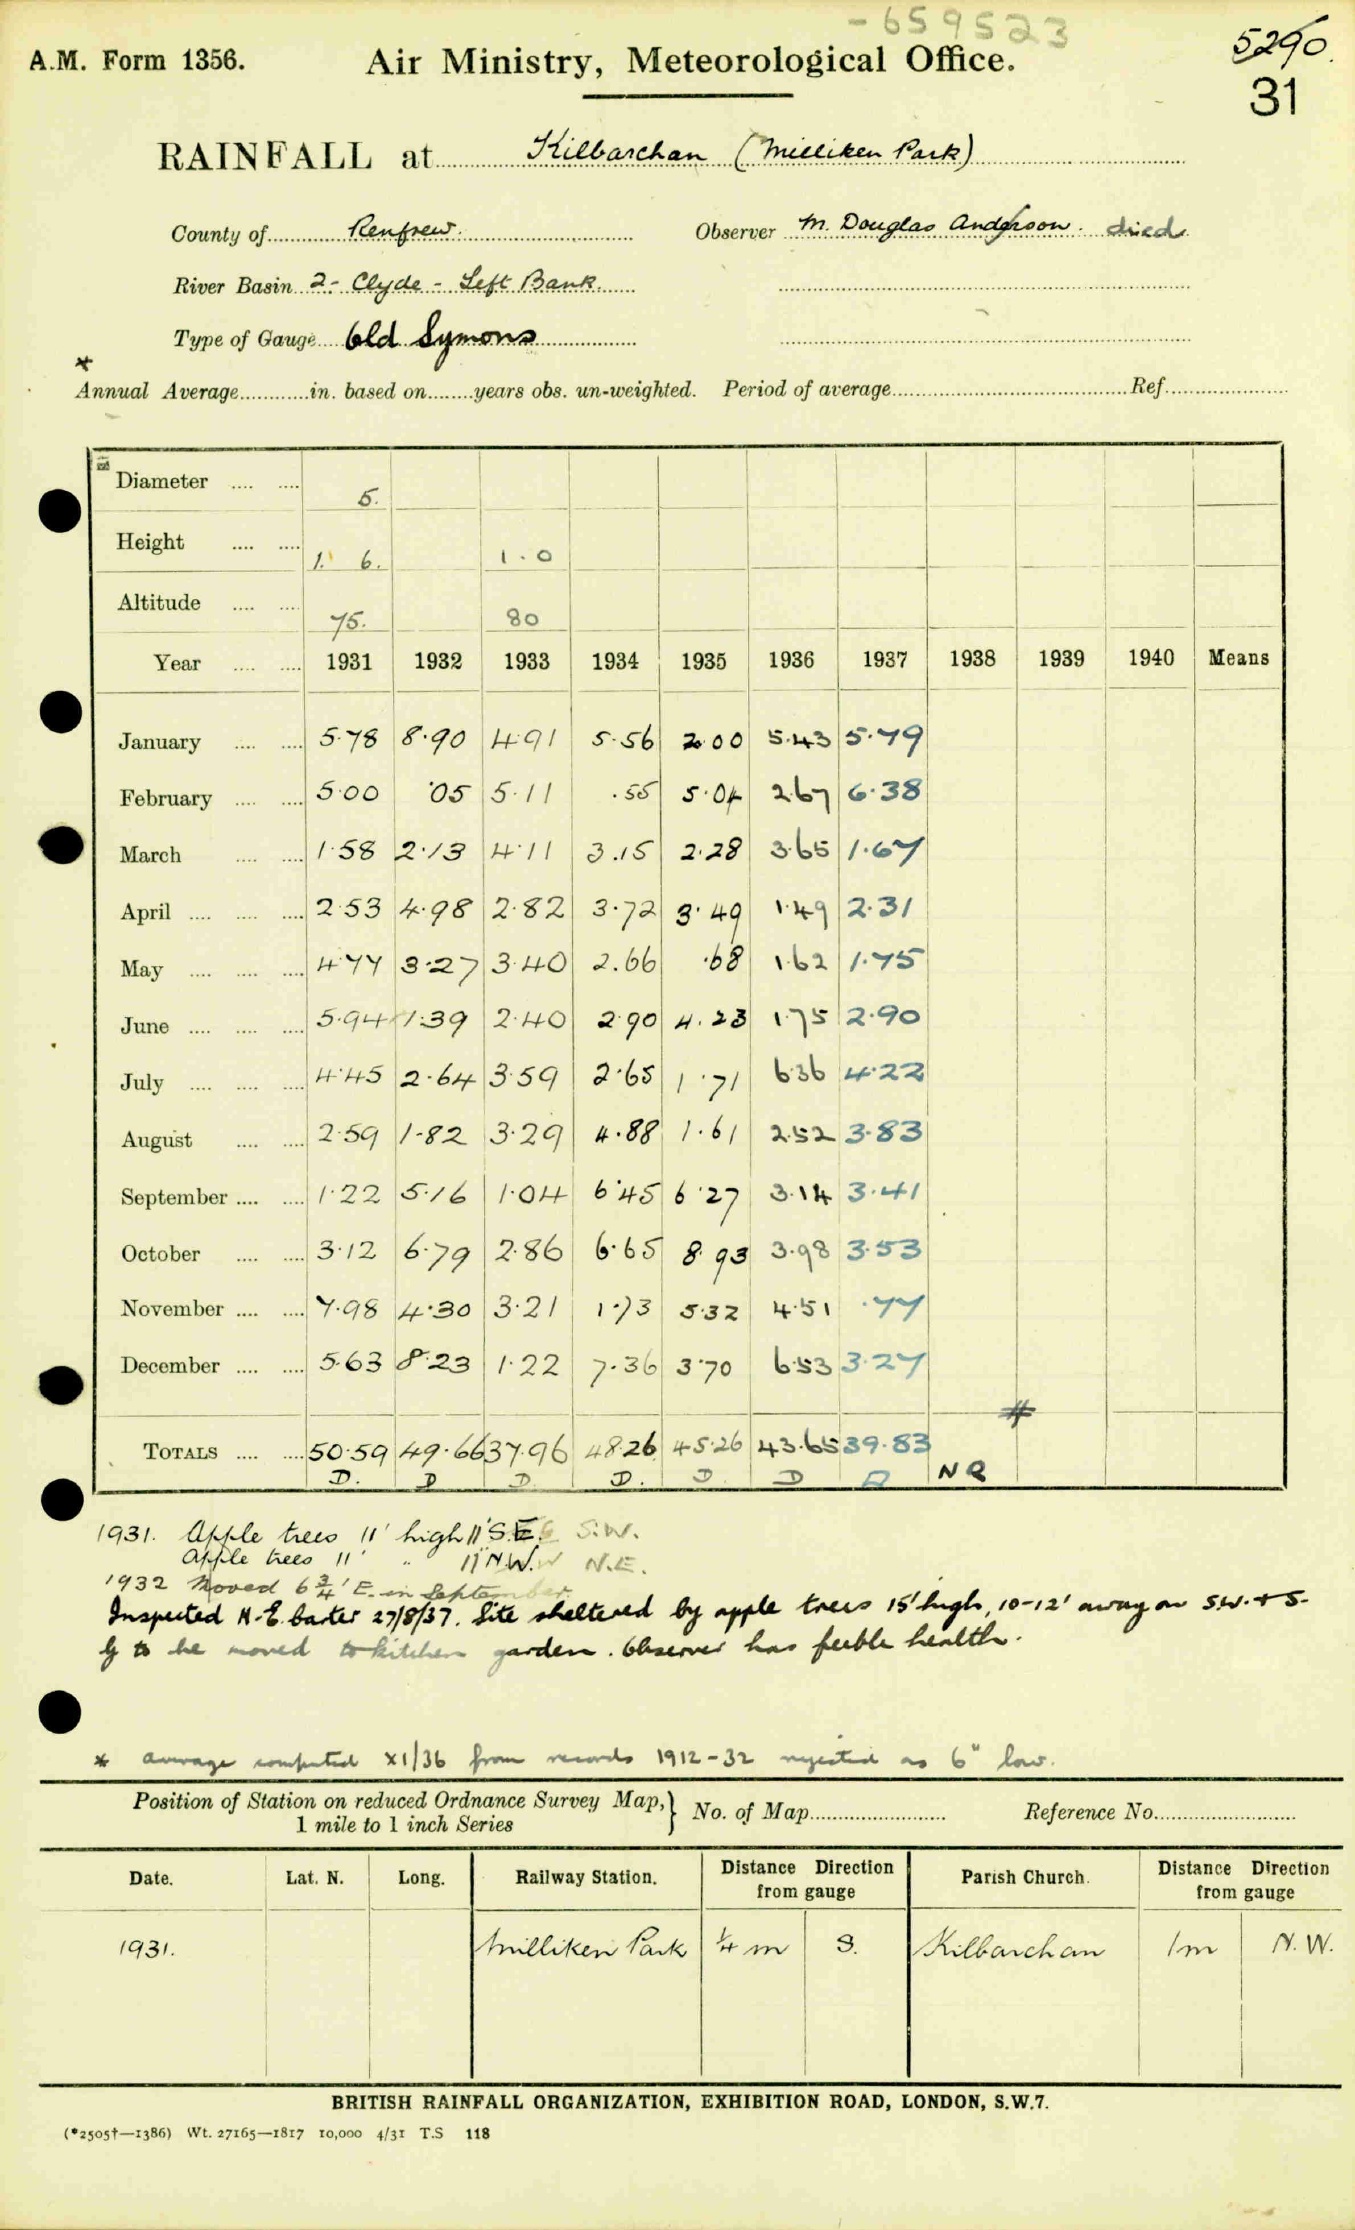 -659523
5290.
A.M. Form 1356. Air Ministry, Meteorological Office.
31
RAINFALL at Kilbarchan (Milliken Park)
County of Renfrew. Observer M. Douglas Anderson. died
River Basin 2- Clyde - Left Bank
Type of Gauge Old Symons
*
Annual Average in. based on years obs. un-weighted. Period of average Ref.
Diameter 5.
Height 1. 6. 1.0
Altitude 75. 80
Year 1931 1932 1933 1934 1935 1936 1937 1938 1939 1940 Means
January 5.78 8.90 4.91 5.56 2.00 5.43 5.79
February 5.00 .05 5.11 .55 5.04 2.67 6.38
March 1.58 2.13 4.11 3.15 2.28 3.65 1.67
April 2.53 4.98 2.82 3.72 3.49 1.49 2.31
May 4.77 3.27 3.40 2.66 .68 1.62 1.75
June 5.94 1.39 2.40 2.90 4.23 1.75 2.90
July 4.45 2.64 3.59 2.65 1.71 6.36 4.22
August 2.59 1.82 3.29 4.88 1.61 2.52 3.83
September 1.22 5.16 1.04 6.45 6.27 3.14 3.41
October 3.12 6.79 2.86 6.65 8.93 3.98 3.53
November 7.98 4.30 3.21 1.73 5.32 4.51 .77
December 5.63 8.23 1.22 7.36 3.70 6.53 3.27
TOTALS 50.59 49.66 37.96 48.26 45.26 43.65 39.83
D. D D. D. D D D NR
1931. Apple trees 11' high 11' S.E. S.W.
Apple trees 11' " 11' N.W. N.E.
1932 Moved 6 3/4' E. in September
Inspected H.E. Carter 27/8/37. Site sheltered by apple trees 15' high, 10-12' away on S.W. + S.
G to be moved to kitchen garden. Observer has feeble health.
* average computed XI/36 from records 1912-32 rejected as 6" low.
Position of Station on reduced Ordnance Survey Map, } No. of Map Reference No.
1 mile to 1 inch Series
Date. Lat. N. Long. Railway Station. Distance Direction from gauge Parish Church. Distance Direction from gauge
1931. Milliken Park 1/4 m S. Kilbarchan 1m N.W.
BRITISH RAINFALL ORGANIZATION, EXHIBITION ROAD, LONDON, S.W.7.
(*2505†—1386) Wt. 27165—1817 10,000 4/31 T.S 118